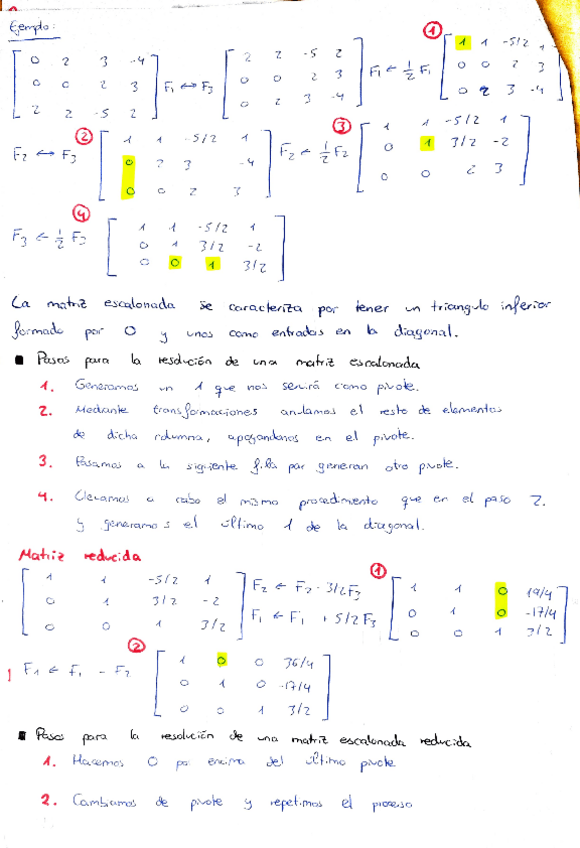 Ejemplo:
[ 0 2 3 -4 ; 0 0 2 3 ; 2 2 -5 2 ] F₁ ↔ F₃ [ 2 2 -5 2 ; 0 0 2 3 ; 0 2 3 -4 ] F₁ ← 1/2 F₁ ① [ 1 1 -5/2 1 ; 0 0 2 3 ; 0 2 3 -4 ]
F₂ ↔ F₃ ② [ 1 1 -5/2 1 ; 0 2 3 -4 ; 0 0 2 3 ] F₂ ← 1/2 F₂ ③ [ 1 1 -5/2 1 ; 0 1 3/2 -2 ; 0 0 2 3 ]
F₃ ← 1/2 F₃ ④ [ 1 1 -5/2 1 ; 0 1 3/2 -2 ; 0 0 1 3/2 ]
La matriz escalonada se caracteriza por tener un triangulo inferior
formado por 0 y unos como entradas en la diagonal.
■ Pasos para la resolución de una matriz escalonada
1. Generamos un 1 que nos servirá como pivote.
2. Mediante transformaciones anulamos el resto de elementos
de dicha columna, apoyandonos en el pivote.
3. Pasamos a la siguiente fila par generan otro pivote.
4. Llevamos a cabo el mismo procedimiento que en el paso 2.
y generamos el último 1 de la diagonal.
Matriz reducida
[ 1 1 -5/2 1 ; 0 1 3/2 -2 ; 0 0 1 3/2 ] F₂ ← F₂ - 3/2F₃ F₁ ← F₁ + 5/2F₃ ① [ 1 1 0 19/4 ; 0 1 0 -17/4 ; 0 0 1 3/2 ]
F₁ ← F₁ - F₂ ② [ 1 0 0 36/4 ; 0 1 0 -17/4 ; 0 0 1 3/2 ]
■ Pasos para la resolución de una matriz escalonada reducida
1. Hacemos 0 por encima del último pivote
2. Cambiamos de pivote y repetimos el proceso